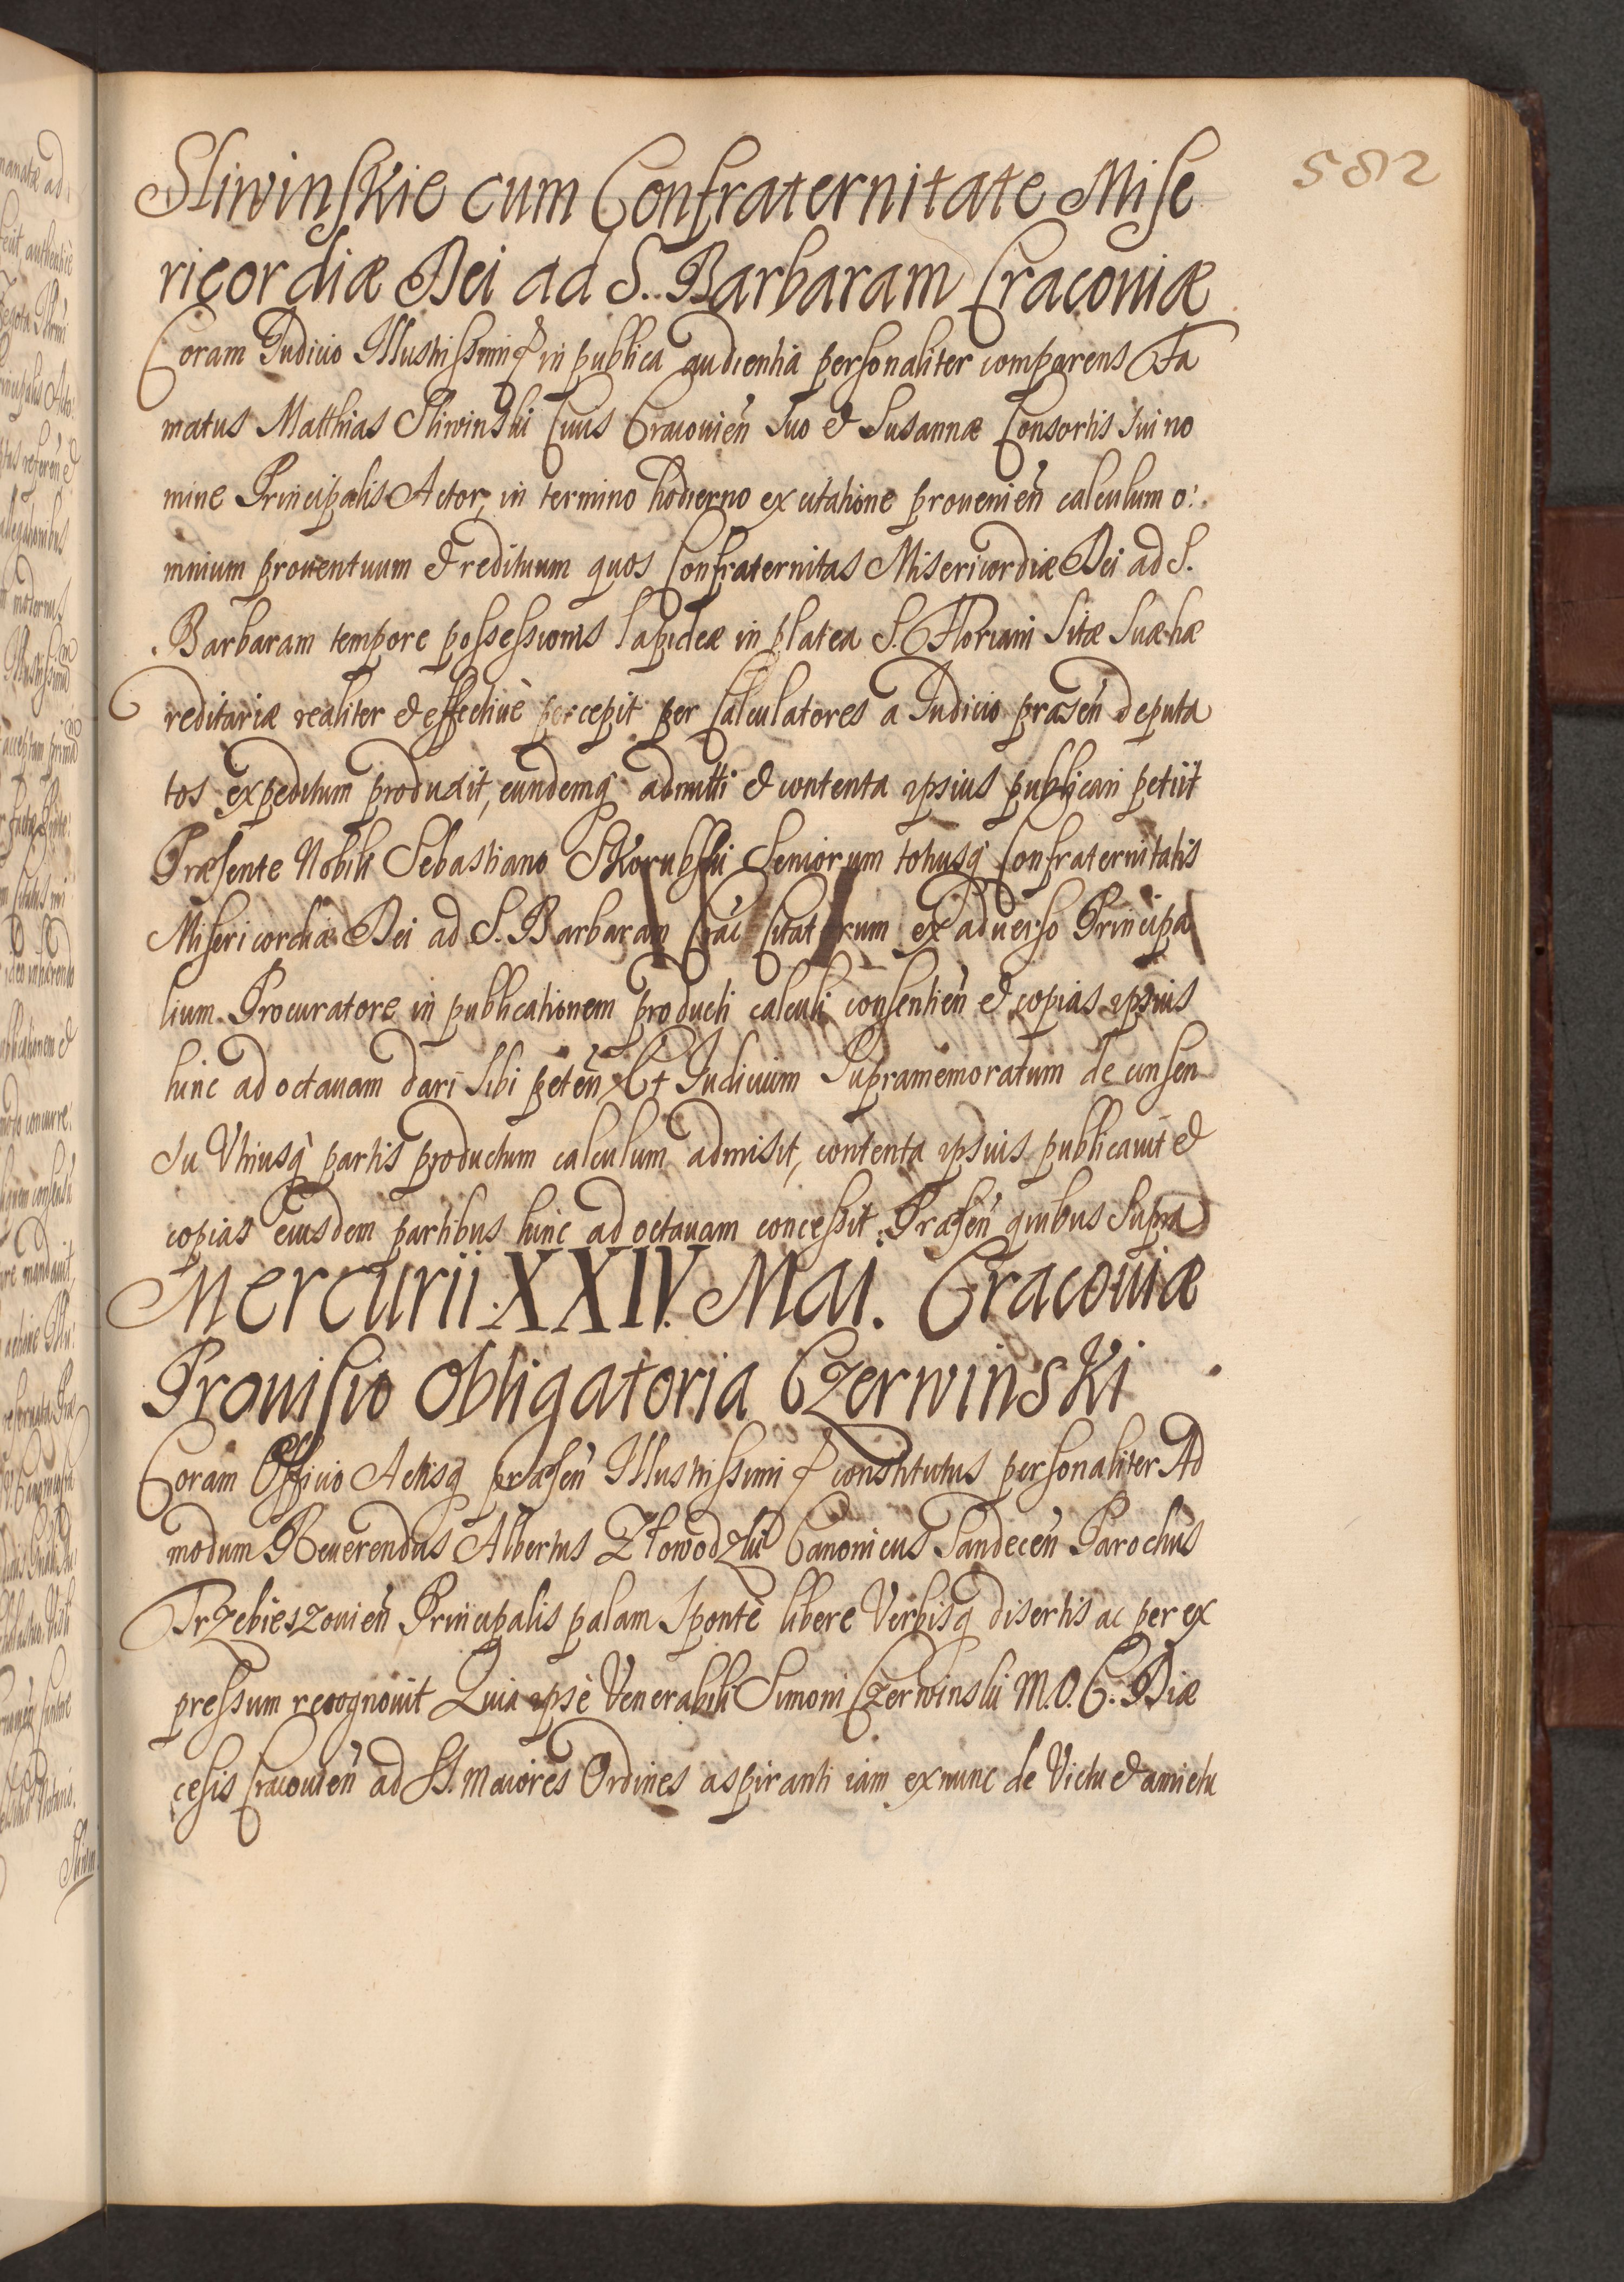 582
Sliwinskie cum Confraternitate Mise
ricordiæ Dei ad S. Barbaram Cracoviæ
Coram Iudicio Illustrissimi in publica audientia personaliter comparens Fa
matus Matthias Sliwinski Civis Cracovien̄ Suo & Susannæ Consortis Sui no
mine Principalis Actor, in termino hodierno ex citatione provenien̄ calculum o:
mnium proventuum & redituum quos Confraternitas Misericordiæ Dei ad S.
Barbaram tempore possessionis lapideæ in platea S. Floriani Sitæ Suæ hæ
reditariæ realiter & effectivè percepit per Calculatores a Iudicio præsen̄ deputa
tos expeditum produxit, eundemq̀ admitti & contenta ipsius publicari petiit
Præsente Nobili Sebastiano Skorubski Seniorum totiusq̀ Confraternitatis
Misericordiæ Dei ad S. Barbaram Crac̄ Citatorum ex adverso Principa
lium Procuratore in publicationem producti calculi consentien̄ & copias ipsius
hinc ad octavam dari Sibi peten̄ Et Iudicium Supramemoratum de consen
su Utriusq̀ partis productum calculum admisit, contenta ipsius publicavit &
copias eiusdem partibus hinc ad octavam concessit. Præsen̄ quibus Supra
Mercurii XXIV. Mai. Cracoviæ
Provisio Obligatoria Czerwinski
Coram Officio Actisq̀ præsen̄ Illustrissimi constitutus personaliter Ad
modum Reverendus Albertus Złowodzki Canonicus Sandecen̄ Parochus
Trzebieszovien̄ Principalis palam Spontè libere Verbisq̀ disertis ac per ex
pressum recognovit Quia ipse Venerabili Simoni Czerwinski M.O.C. Diæ
cesis Cracovien̄ ad SS. Maiores Ordines aspiranti iam ex nunc de Victu & amictu